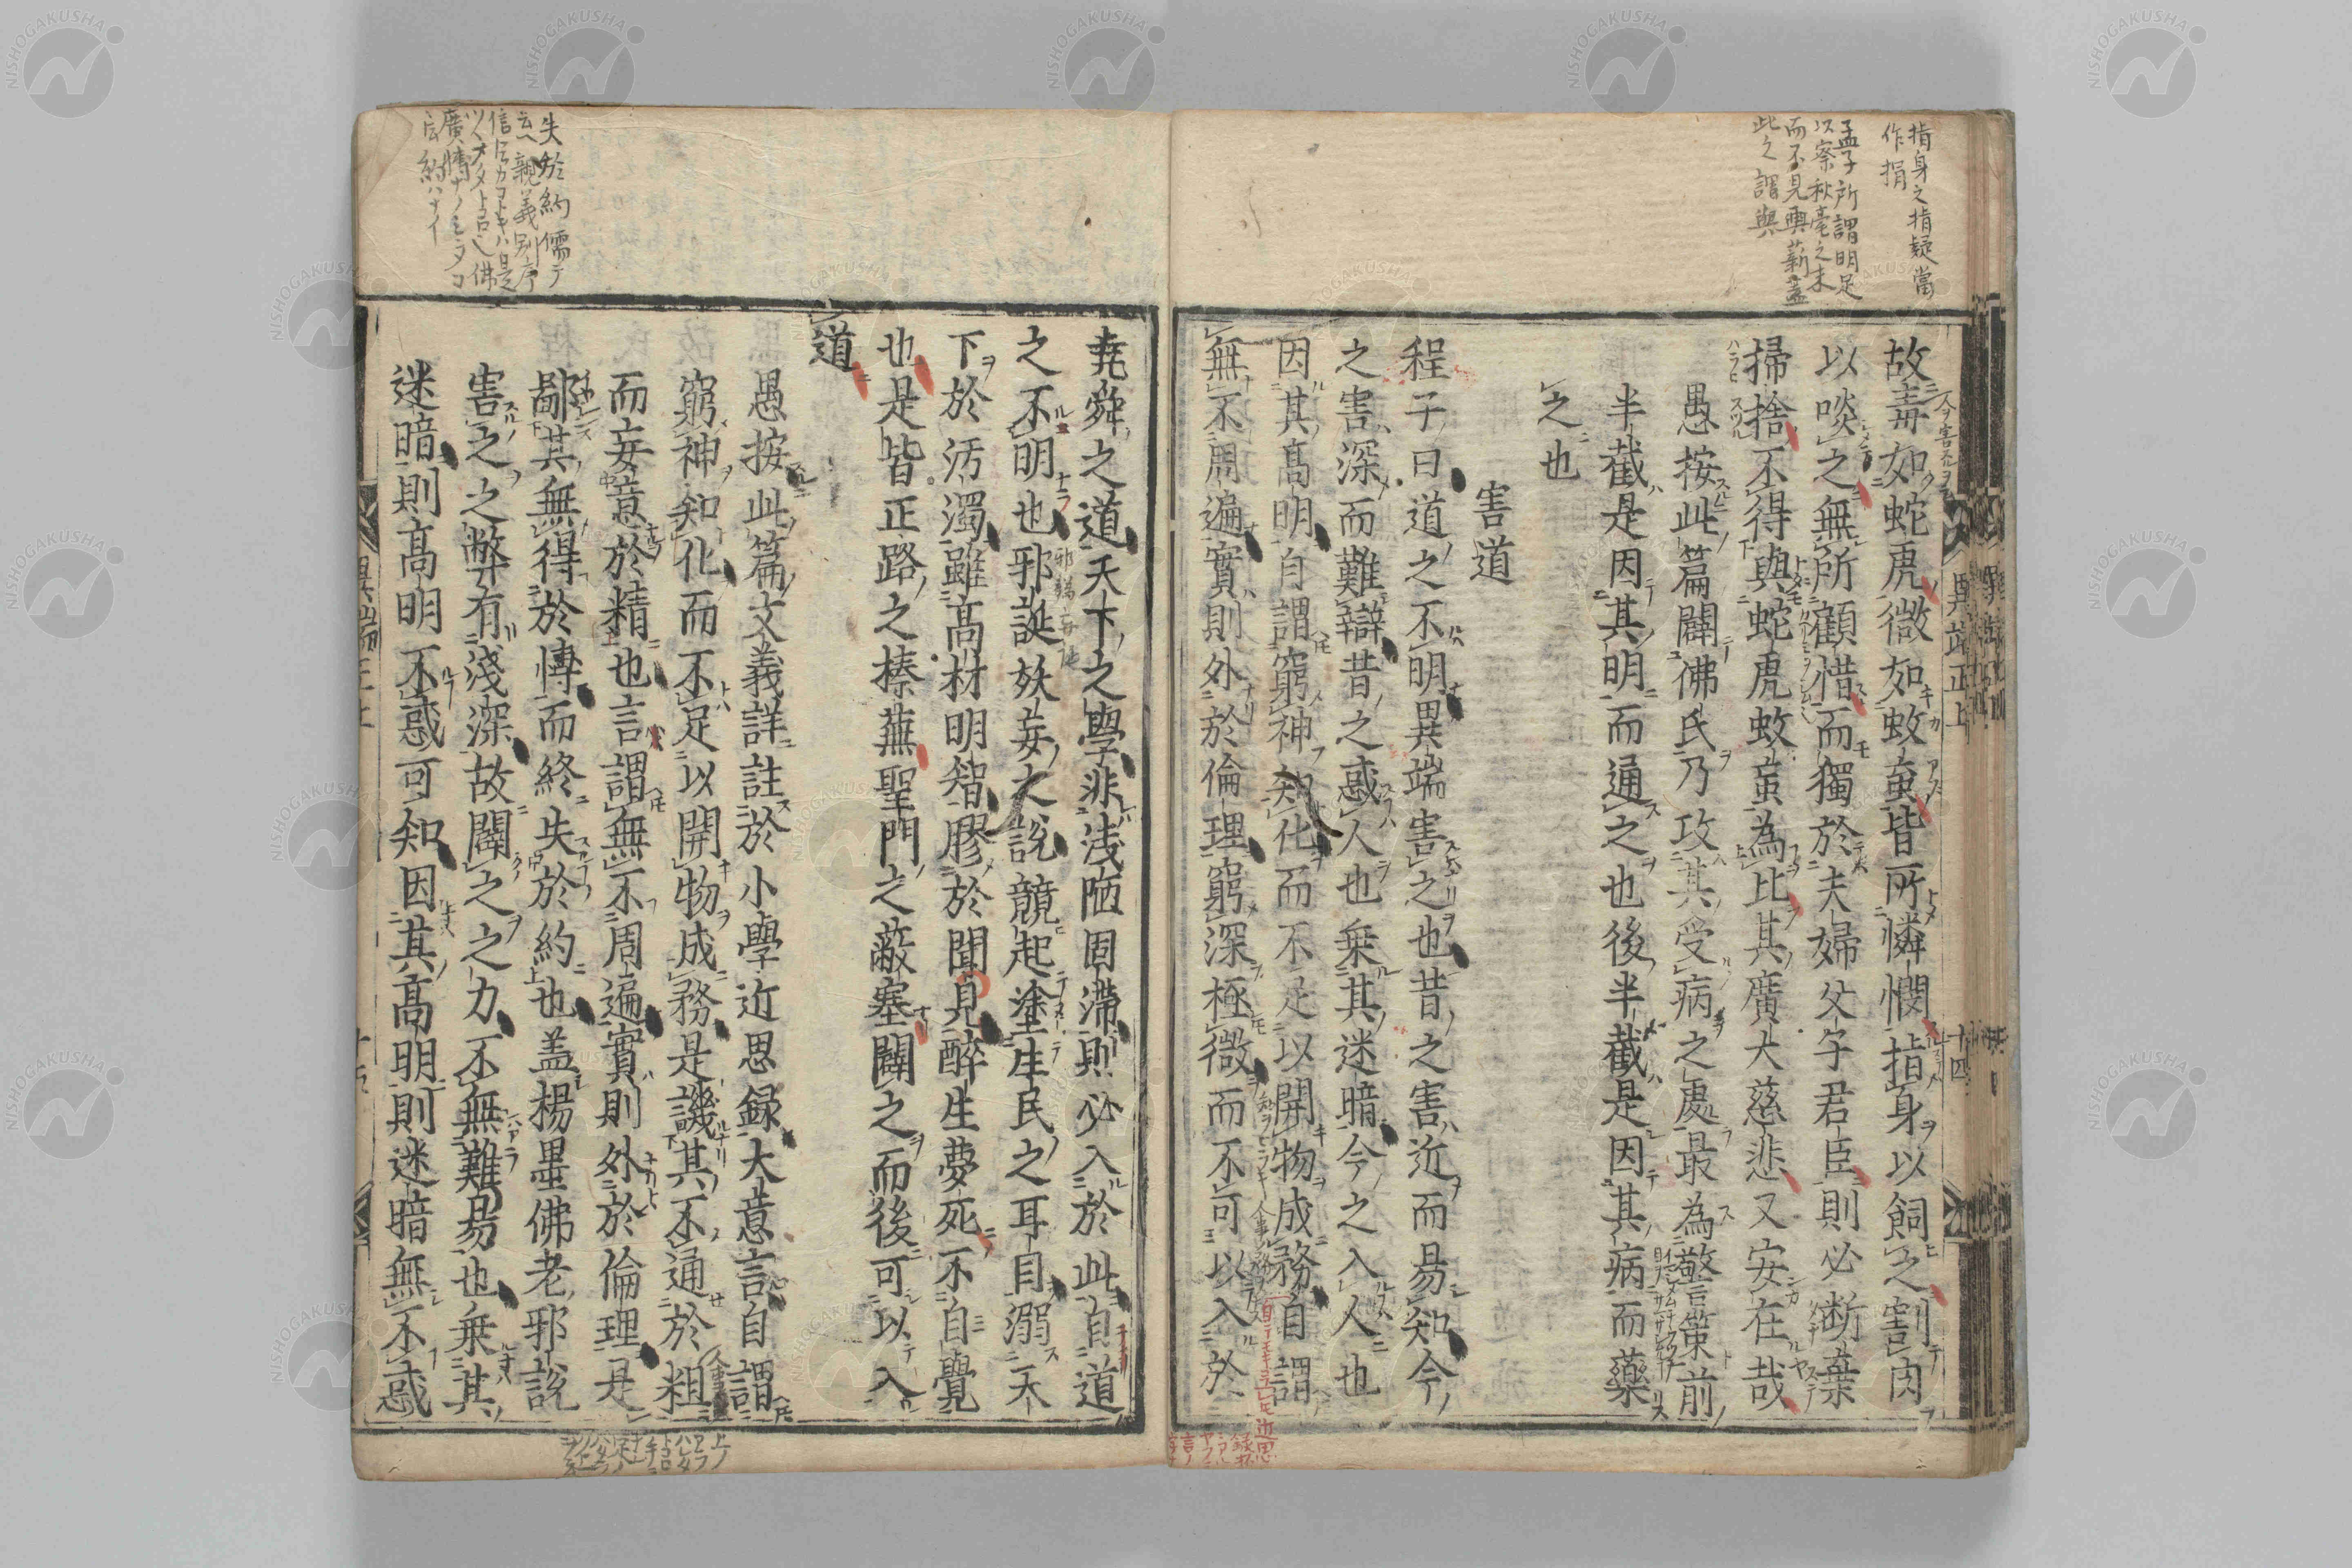 指身之指疑當
作捐
孟子所謂明足
以察秋毫之末
而不見輿薪蓋
此之謂與
故毒如蛇虎微如蚊䖟皆所憐憫指身以飼之割肉
以啖之無所顧惜而獨於夫婦父子君臣則必断棄
掃捨不得與蛇虎蚊䖟為比其廣大慈悲又安在哉
愚按此篇闢佛氏乃攻其受病之處最為警策前
半截是因其明而通之也後半截是因其病而藥
之也
害道
程子曰道之不明異端害之也昔之害近而易知今
之害深而難辯昔之惑人也乗其迷暗今之入人也
因其髙明自謂窮神知化而不足以開物成務自謂
無不周遍實則外於倫理窮深極微而不可以入於
異端正上
十四
堯舜之道天下之學非浅陋固滞則必入於此自道
之不明也邪誕妖妄之說競起塗生民之耳目溺天
下於汚濁雖髙材明智膠於聞見醉生夢死不自覺
也是皆正路之榛蕪聖門之蔽塞闢之而後可以入
道
愚按此篇文義詳註於小學近思録大意言自謂
窮神知化而不足以開物成務是譏其不通於粗
而妄意於精也言謂無不周遍實則外於倫理是
鄙其無得於慱而終失於約也盖楊墨佛老邪說
害之之弊有淺深故闢之之力不無難易也乗其
迷暗則髙明不惑可知因其髙明則迷暗無不惑
失於約儒テ
云ヘハ親義別序